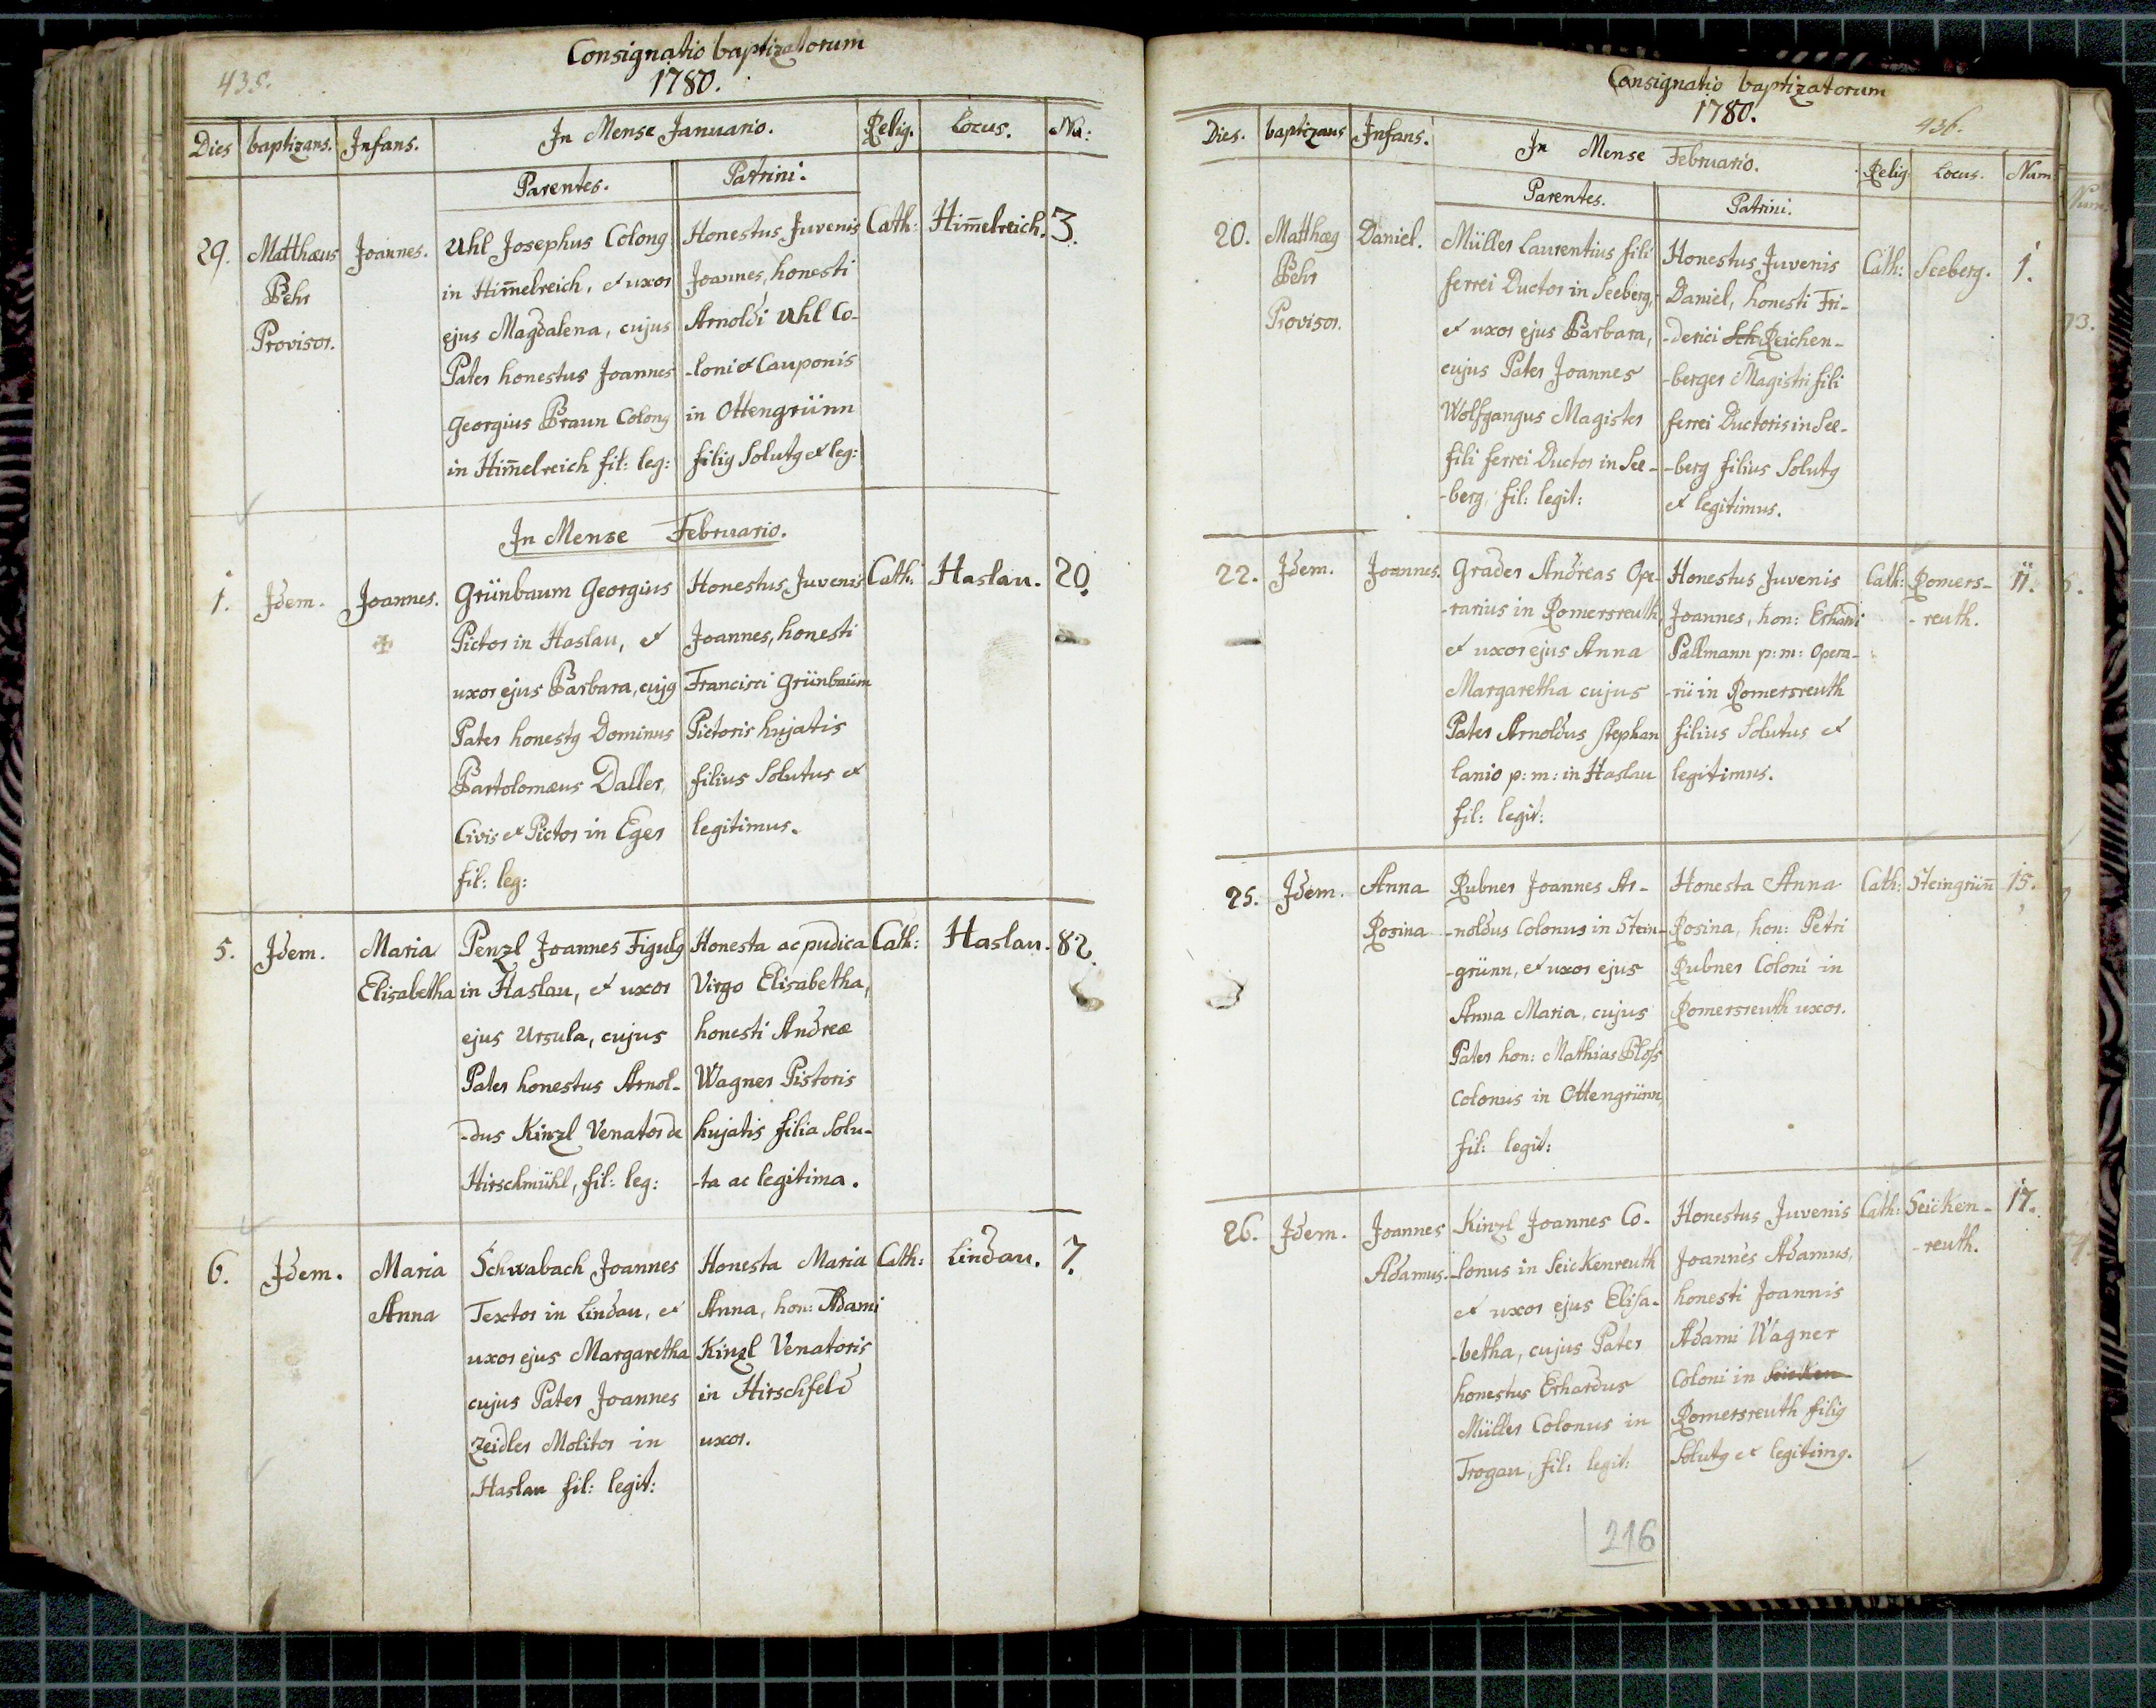 435.
Consignatio baptizatorum
1780.
Dies baptizans. Infans. In Mense Januario. Relig. Locus. Nu:
Parentes. Patrini.
29. Matthæus Joannes. Uhl Josephus Colonꝯ Honestus Juvenis Cath: Him̄elreich. 3.
Pehr in Him̄elreich, et uxor Joannes, honesti
Provisor. ejus Magdalena, cujus Arnoldi Uhl Co-
Pater honestus Joannes -loni et Cauponis
Georgius Braun Colonꝯ in Ottengrünn
in Him̄elreich fil: leg: filiꝯ Solutꝯ et leg:
In Mense Februario.
1. Idem. Joannes. Grünbaum Georgius Honestus Juvenis Cath: Haslau. 20.
Pictor in Haslau, et Joannes, honesti
uxor ejus Barbara, cujꝯ Francisci Grünbaum
Pater honestꝯ Dominus Pictoris hujatis
Bartolomæus Daller, filius Solutus et
Civis et Pictor in Eger legitimus.
fil: leg:
5. Idem. Maria Penzl Joannes Figulꝯ Honesta ac pudica Cath: Haslau. 82.
Elisabetha in Haslau, et uxor Virgo Elisabetha,
ejus Ursula, cujus honesti Andreæ
Pater honestus Arnol- Wagner Pistoris
-dus Kinzl Venator de hujatis filia Solu-
Hirschmühl, fil: leg: -ta ac legitima.
6. Idem. Maria Schwabach Joannes Honesta Maria Cath: Lindau. 7.
Anna Textor in Lindau, et Anna, hon: Adami
uxor ejus Margaretha Kinzl Venatoris
cujus Pater Joannes in Hirschfeld
Zeidler Molitor in uxor.
Haslau fil: legit:
Consignatio baptizatorum
1780.
436.
Dies. baptizans Infans. In Mense Februario. Relig: Locus. Num:
Parentes. Patrini.
20. Matthæꝯ Daniel. Müller Laurentius fili Honestus Juvenis Cath: Seeberg. 1.
Pehr ferrei Ductor in Seeberg, Daniel, honesti Fri-
Provisor. et uxor ejus Barbara, -derici Sch Reichen-
cujus Pater Joannes -berger Magistri fili
Wolfgangus Magister ferrei Ductoris in See-
fili ferrei Ductor in See- -berg filius Solutꝯ
-berg, fil: legit: et legitimus.
22. Idem. Joannes. Grader Andreas Ope- Honestus Juvenis Cath: Romers- 11.
-rarius in Romersreuth, Joannes, hon: Erhardi -reuth.
et uxor ejus Anna Pallmann p: m: Opera-
Margaretha cujus -rii in Romersreuth
Pater Arnoldus Stephan filius Solutus et
Lanio p: m: in Haslau legitimus.
fil: legit:
25. Idem. Anna Rubner Joannes Ar- Honesta Anna Cath: Steingrün̄ 15.
Rosina -noldus Colonus in Stein- Rosina, hon: Petri
-grünn, et uxor ejus Rubner Coloni in
Anna Maria, cujus Romersreuth uxor.
Pater hon: Mathias Ploß
Colonus in Ottengrünn,
fil: legit:
26. Idem. Joannes Kinzl Joannes Co- Honestus Juvenis Cath: Seicken- 17.
Adamus. -lonus in Seickenreuth Joannes Adamus, -reuth.
et uxor ejus Elisa- honesti Joannis
-betha, cujus Pater Adami Wagner
honestus Erhardus Coloni in Seicken
Müller Colonus in Romersreuth filiꝯ
Trogau, fil: legit: Solutꝯ et legitimꝯ.
216